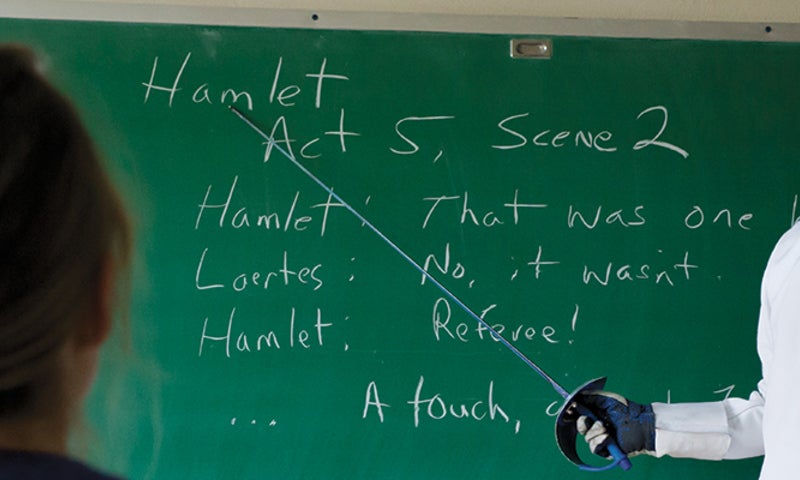 Hamlet
Act 5, Scene 2
Hamlet: That was one
Laertes: No, it wasn't.
Hamlet: Referee!
... A touch, a